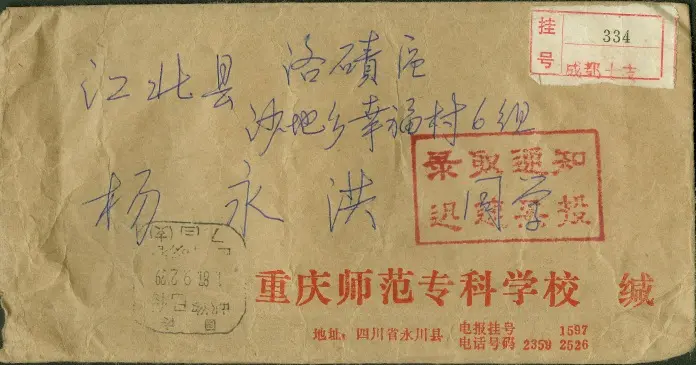 挂号
334
成都十支
洛碛区
江北县
沙地乡幸福村6组
杨永洪 同学
录取通知
迅速妥投
重庆师范专科学校 缄
地址：四川省永川县
电报挂号 1597
电话号码 2359 2526